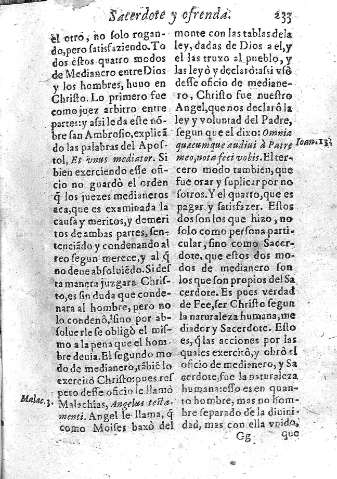 Sacerdote y ofrenda. 233
el otro, no solo rogan-
do, pero satisfaziendo. To
dos estos quatro modos
de Medianero entre Dios
y los hombres, huuo en
Christo. Lo primero fue
como juez arbitro entre
partes: y assi le da este nõ-
bre san Ambrosio, explicã
do las palabras del Apos-
tol, Et vnus mediator. Si
bien exerciendo este offi-
cio no guardò el orden
q̃ los juezes medianeros
aca, que es examinada la
causa y meritos, y demeri
tos de ambas partes, sen-
tenciãdo y condenando al
reo segun merece, y al q̃
no deue absoluiẽdo. Si des
ta manera juzgara Chris-
to, es sin duda que conde-
nara al hombre, pero no
lo condenò, sino por ab-
soluerle se obligò el mis-
mo a la pena que el hom-
bre deuia. El segundo mo-
do de medianero, tãbiẽ lo
exercitò Christo: pues res
peto desse oficio le llamò
Malac. 3. Malachias, Angelus testa-
menti. Angel le llama, q̃
como Moises baxò del
monte con las tablas de la
ley, dadas de Dios a el, y
el las truxo al pueblo, y
las leyò y declarò: assi vsò
desse oficio de mediane-
ro, Christo fue nuestro
Angel, que nos declarò la
ley y voluntad del Padre,
segun que el dixo: Omnia
quæcumque audiui à Patre Ioan. 15.
meo, nota feci vobis. El ter-
cero modo tambien, que
fue orar y suplicar por no
sotros. Y el quarto, que es
pagar y satisfazer. Estos
dos son los que hizo, no
solo como persona parti-
cular, sino como Sacer-
dote, que estos dos mo-
dos de medianero son
los que son propios del Sa
cerdote. Es pues verdad
de Fee, ser Christo segun
la naturaleza humana, me
diador y Sacerdote. Esto
es, q̃ las acciones por las
quales exercitò, y obrò el
oficio de medianero, y Sa
cerdote, fue la naturaleza
humana: esso es en quan-
to hombre, mas no hom-
bre separado de la diuini-
dad, mas con ella vnido,
Gg que